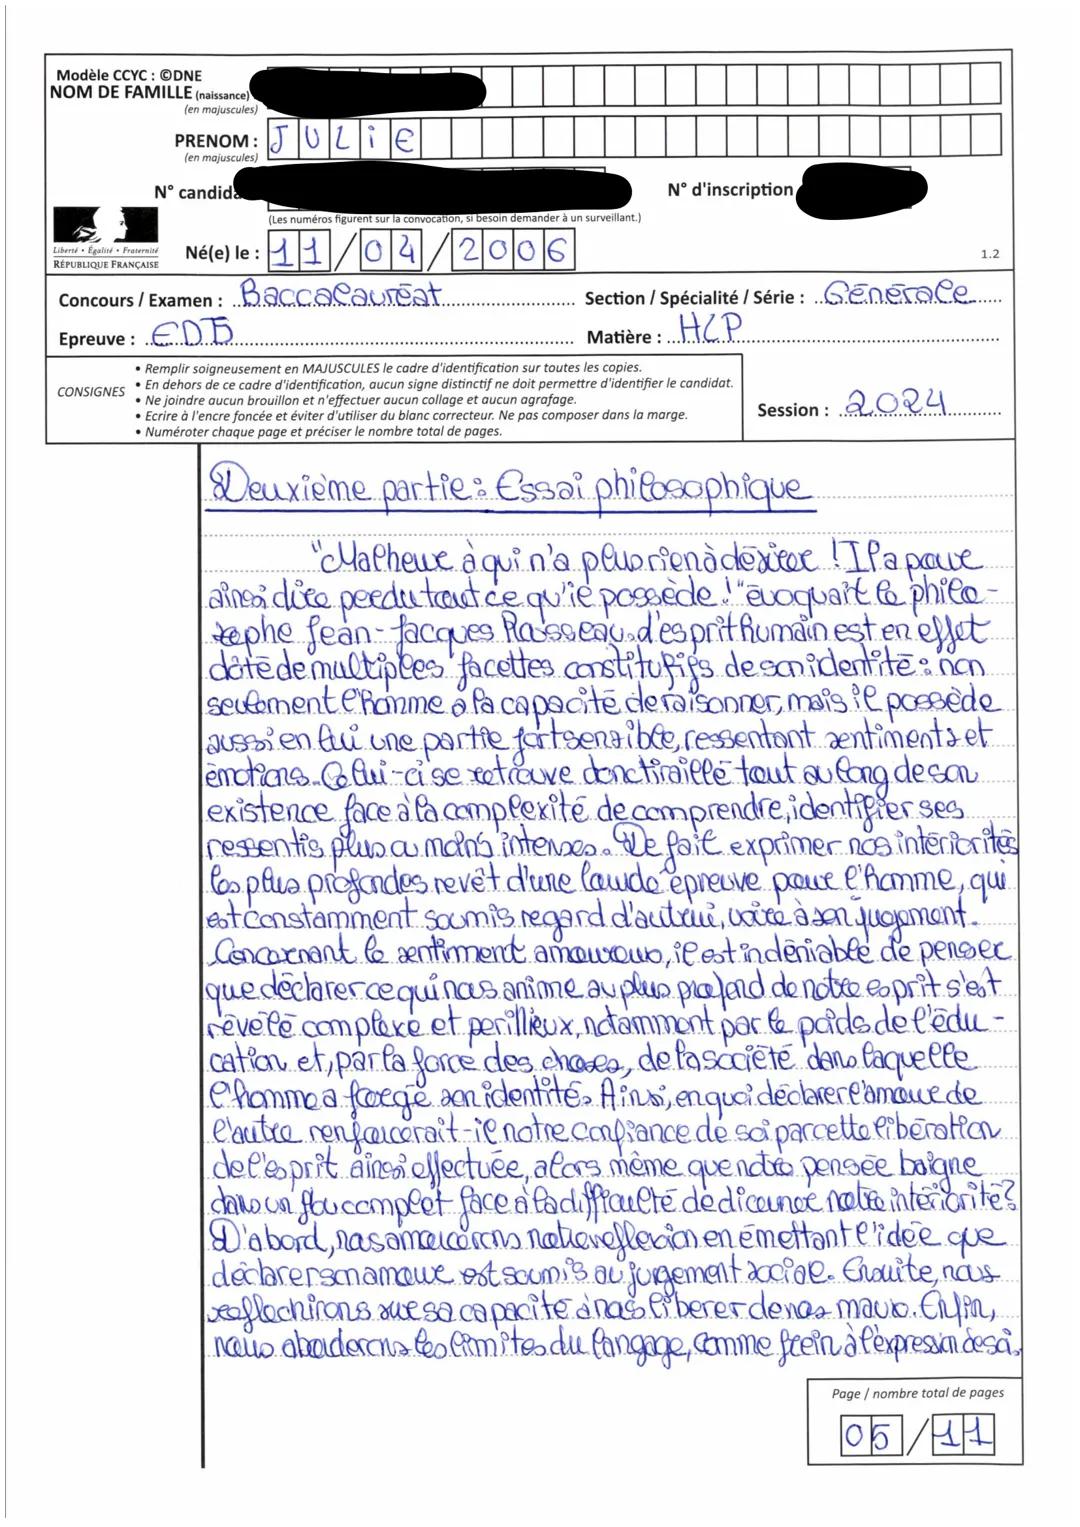 Modèle CCYC : ©DNE
NOM DE FAMILLE (naissance)
(en majuscules)
PRENOM : JULiE
(en majuscules)
N° candida
N° d'inscription
(Les numéros figurent sur la convocation, si besoin demander à un surveillant.)
Liberté • Égalité • Fraternité
RÉPUBLIQUE FRANÇAISE
Né(e) le : 11/04/2006
1.2
Concours / Examen : Baccalauréat Section / Spécialité / Série : Générale
Epreuve : EDS Matière : HLP
CONSIGNES
• Remplir soigneusement en MAJUSCULES le cadre d'identification sur toutes les copies.
• En dehors de ce cadre d'identification, aucun signe distinctif ne doit permettre d'identifier le candidat.
• Ne joindre aucun brouillon et n'effectuer aucun collage et aucun agrafage.
• Ecrire à l'encre foncée et éviter d'utiliser du blanc correcteur. Ne pas composer dans la marge.
• Numéroter chaque page et préciser le nombre total de pages.
Session : 2024
Deuxième partie : Essai philosophique
"Malheur à qui n'a plus rien à désirer ! Il a pour
ainsi dire perdu tout ce qu'il possède !" évoquait le philo-
sophe Jean-Jacques Rousseau. L'esprit humain est en effet
dôté de multiples facettes constitutifs de son identité : non
seulement l'homme a la capacité de raisonner, mais il possède
aussi en lui une partie fort sensible, ressentant sentiments et
émotions. Celui-ci se retrouve donc tiraillé tout au long de son
existence face à la complexité de comprendre, identifier ses
ressentis plus ou moins intenses. De fait exprimer nos intériorités
les plus profondes revêt d'une lourde épreuve pour l'homme, qui
est constamment soumis regard d'autrui, voire à son jugement.
Concernant le sentiment amoureux, il est indéniable de penser
que déclarer ce qui nous anime au plus profond de notre esprit s'est
révélé complexe et périllieux, notamment par le poids de l'édu-
cation et, par la force des choses, de la société dans laquelle
l'homme a forgé son identité. Ainsi, en quoi déclarer l'amour de
l'autre renforcerait-il notre confiance de soi par cette libération
de l'esprit ainsi effectuée, alors même que notre pensée baigne
dans un flou complet face à la difficulté de dicerner notre intériorité ?
D'abord, nous amorcerons notre reflexion en émettant l'idée que
déclarer son amour est soumis au jugement social. Ensuite, nous
reflechirons sur sa capacité à nous liberer de nos maux. Enfin,
nous aborderons les limites du langage, comme frein à l'expression de soi.
Page / nombre total de pages
05/11